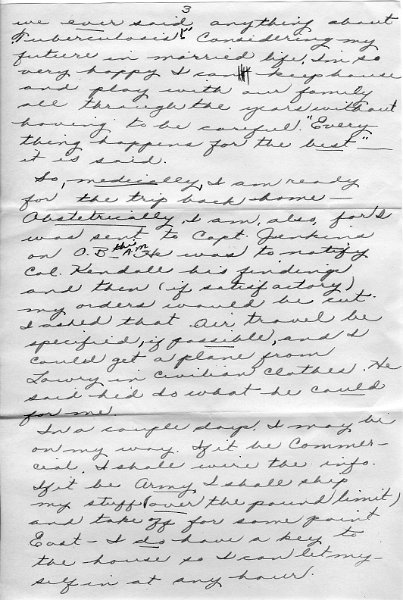 3
we ever said anything about
Tuberculosis". Considering my
future in married life, I'm so
very happy I can keep house
and play with our family
all through the years without
having to be careful. "Every
thing happens for the best" —
it is said.
So, medically, I am ready
for the trip back home —
Obstetrically, I am, also, for I
was sent to Capt. Jenkins
on O.B. this A.M. He was to notify
Col. Kendall his findings
and then (if satisfactory)
my orders would be cut.
I asked that Air travel be
specified, if possible, and I
could get a plane from
Lowry in civilian clothes. He
said he'd do what he could
for me.
In a couple days, I may be
on my way. If it be Commer-
cial, I shall wire the info.
If it be Army, I shall ship
my stuff (over the pound limit)
and take off for some point
East — I do have a key to
the house so I can let my-
self in at any hour.